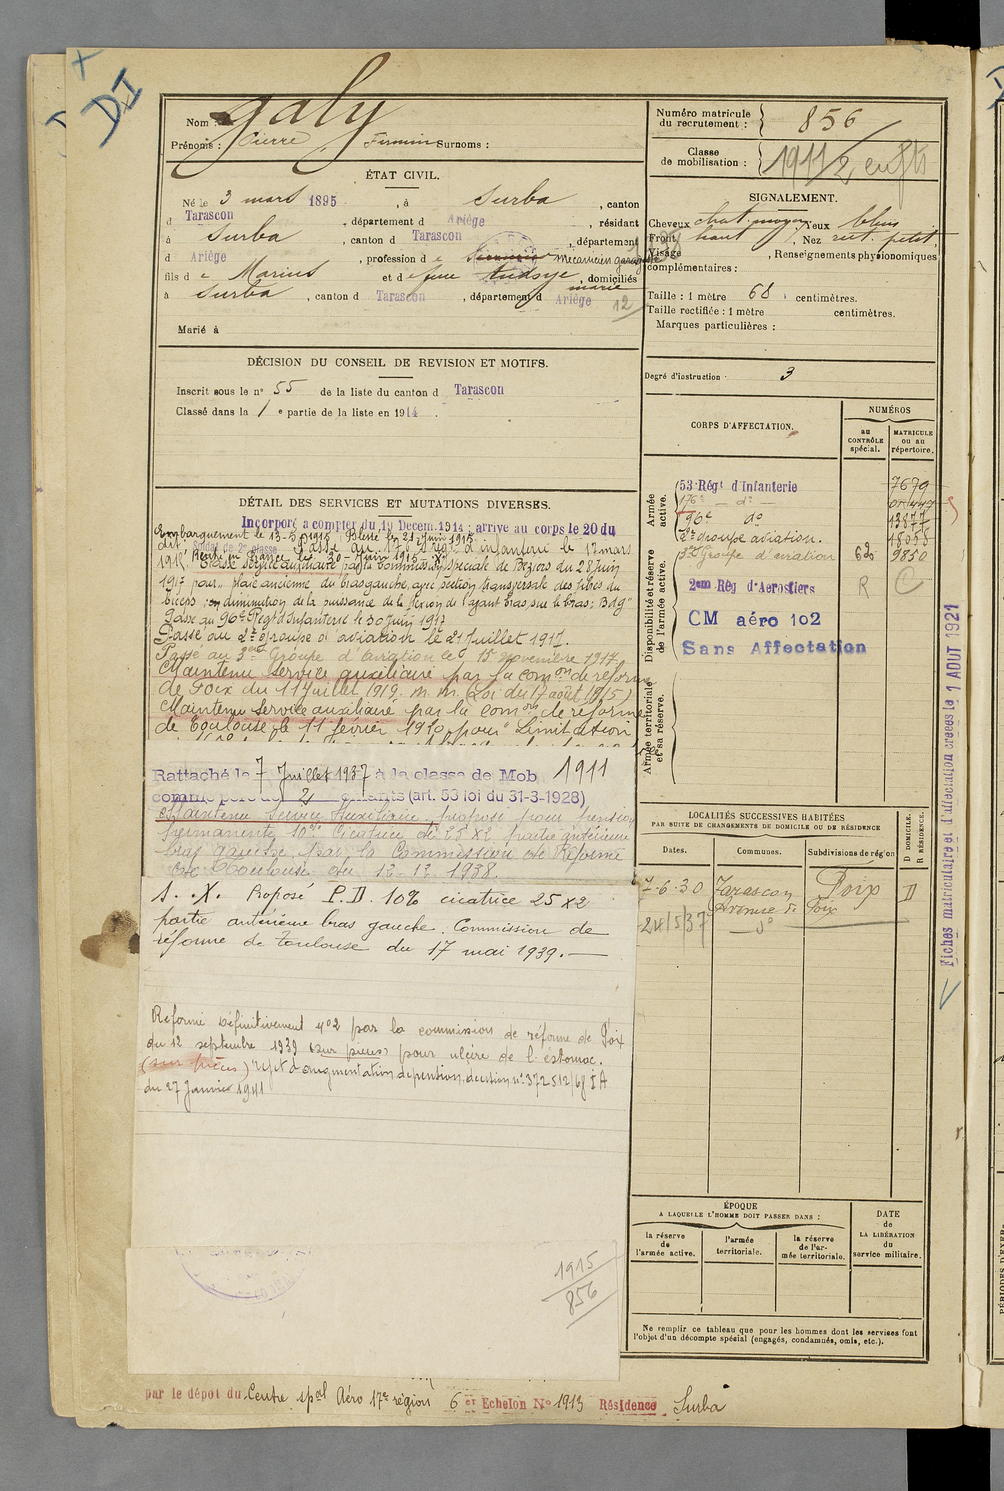 DI
Nom : Galy
Prénoms : Pierre Firmin Surnoms :
Numéro matricule du recrutement : 856
Classe de mobilisation : 1911/2 enfts
ÉTAT CIVIL.
Né le 3 mars 1895, à Surba, canton
d Tarascon, département d Ariège, résidant
à Surba, canton d Tarascon, département
d Ariège, profession d e mécanicien garagiste
fils d e Marius et d e feue, domiciliés
à Surba, canton d Tarascon, département d Ariège
12
Marié à
SIGNALEMENT.
Cheveux chat. moyen Yeux bleus
Front haut, Nez rect. petit
Visage, Renseignements physionomiques
complémentaires :
Taille : 1 mètre 68 centimètres.
Taille rectifiée : 1 mètre centimètres.
Marques particulières :
Degré d'instruction : 3
DÉCISION DU CONSEIL DE REVISION ET MOTIFS.
Inscrit sous le n° 55 de la liste du canton d Tarascon
Classé dans la 1 e partie de la liste en 1914.
CORPS D'AFFECTATION.
NUMÉROS
au CONTRÔLE spécial.
MATRICULE ou au répertoire.
Armée active.
53 Régt d'Infanterie 7679
176e — do —
96e do 13877
2e Groupe aviation. 18055
3e Groupe d'aviation 630 9850
Disponibilité et réserve de l'armée active.
2em Rég d'Aerostiers R C
CM aéro 102
Sans Affectation
Armée territoriale et sa réserve.
DÉTAIL DES SERVICES ET MUTATIONS DIVERSES.
Incorporé a compter du 19 Décem. 1914 : arrivé au corps le 20 du
Embarquement le 13-5-1915. Blessé le 21 juin 1915
dit. Soldat de 2e classe Passé au 176e Régt d'infanterie le 12 mars
1915. Rentré en France le 30 Juin 1915. Classé service auxiliaire par la commission spéciale de Béziers du 28 juin
1917 pour "plaie ancienne du bras gauche, avec section transversale des fibres du
biceps; diminution de la puissance de la flexion de l'avant bras, sur le bras; B d g"
Passé au 96e Régt d'Infanterie le 30 juin 1917
Passé au 2e Groupe d'aviation le 21 Juillet 1917.
Passé au 3eme Groupe d'aviation le 15 novembre 1917.
Maintenu service auxiliaire par la comon de réforme
de Foix du 11 Juillet 1919. m.m. (Loi du 17 août 1915)
Maintenu service auxiliaire par la comon de réforme
de Toulouse le 11 février 1920 pour "Limitation
Rattaché le 7 Juillet 1937 à la classe de Mob 1911
comme père de 2 enfants (art. 53 loi du 31-3-1928)
Maintenu Service Auxiliaire, proposé pour pension
permanente 10% Cicatrice de 25 x 2 partie antérieure
bras gauche, par la Commission de Réforme
de Toulouse du 12-12-1938.
S. X. Proposé P.D. 10% cicatrice 25 x 2
partie antérieure bras gauche. Commission de
réforme de Toulouse du 17 mai 1939.—
Réformé Définitivement n°2 par la commission de réforme de Foix
du 12 septembre 1939 (sur pièces) pour ulcère de l'estomac.
(sur pièces) rejet d'augmentation de pension, décision n° 372512/68 I A
du 27 Janvier 1941
LOCALITÉS SUCCESSIVES HABITÉES
PAR SUITE DE CHANGEMENTS DE DOMICILE OU DE RÉSIDENCE
D DOMICILE. R RÉSIDENCE.
Dates. Communes. Subdivisions de région
7-6-30 Tarascon Foix D
Avenue de Foix
24/5/37 — do
Fiches matriculaire et d'affectation créées le 1 AOUT 1921
ÉPOQUE
A LAQUELLE L'HOMME DOIT PASSER DANS :
DATE de LA LIBÉRATION du service militaire.
la réserve de l'armée active.
l'armée territoriale.
la réserve de l'armée territoriale.
Ne remplir ce tableau que pour les hommes dont les services font
l'objet d'un décompte spécial (engagés, condamnés, omis, etc.).
1915
856
par le dépôt du Centre spal Aéro 17e région 6 er Echelon No 1913 Résidence Surba